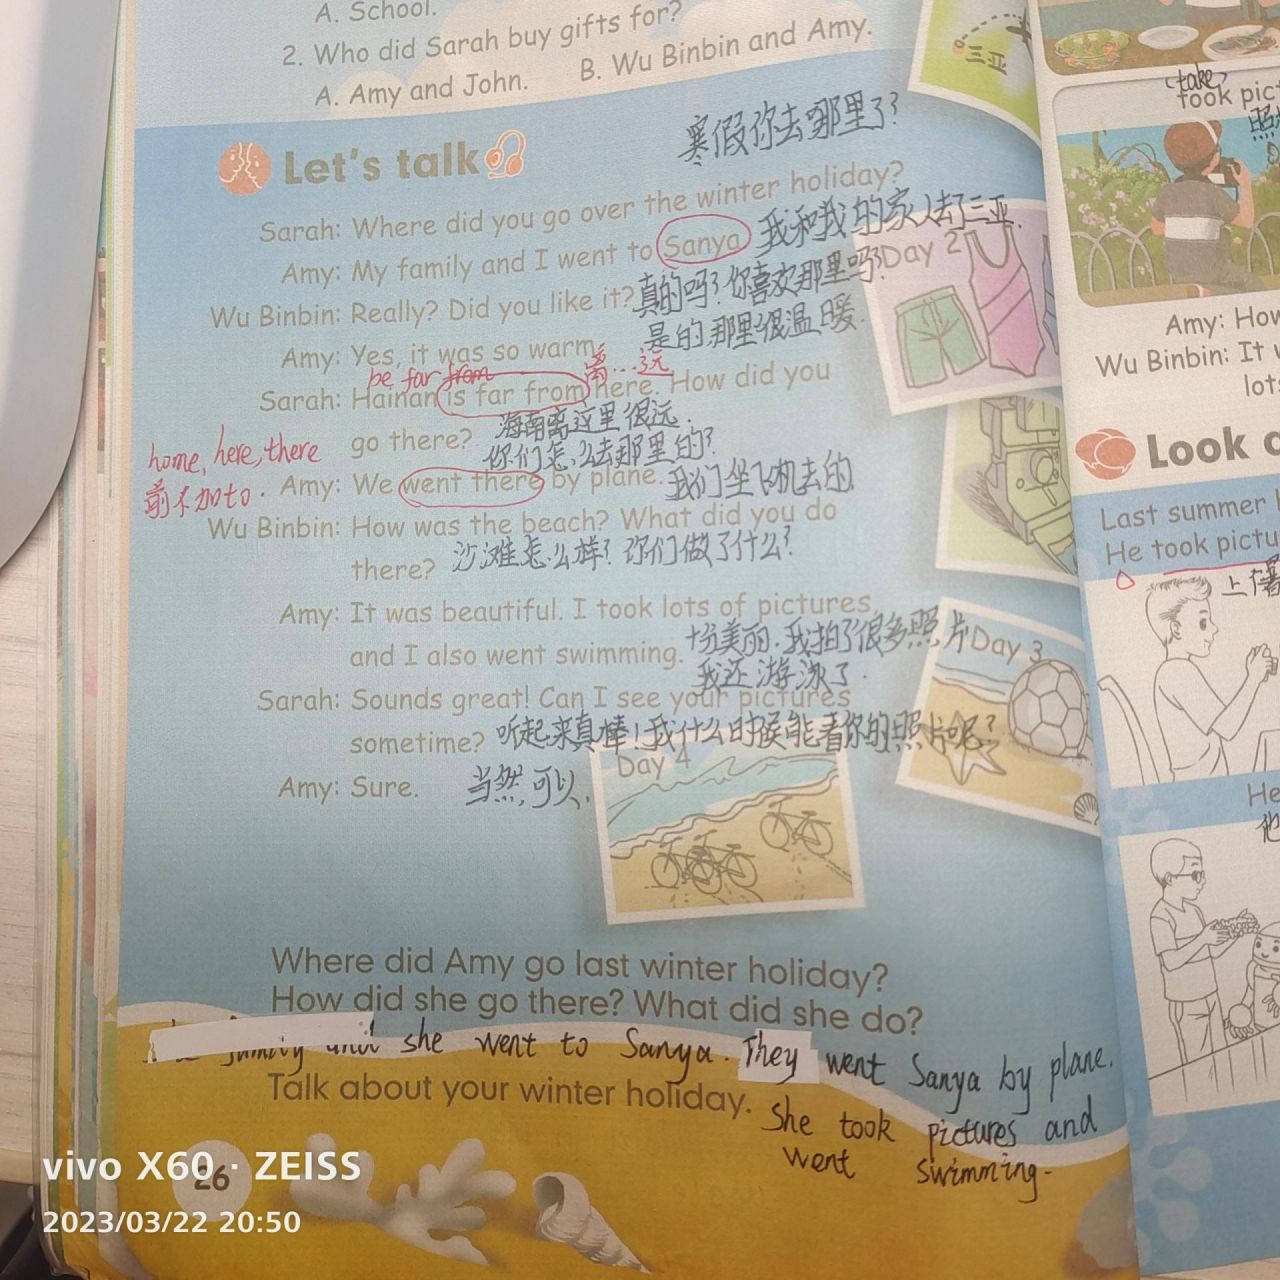 A. School.
2. Who did Sarah buy gifts for?
A. Amy and John. B. Wu Binbin and Amy.
三亚
Let's talk
寒假你去哪里了?
Sarah: Where did you go over the winter holiday?
Amy: My family and I went to Sanya 我和我的家人去了三亚.
Wu Binbin: Really? Did you like it? 真的吗?你喜欢那里吗?
Day 2
Amy: Yes, it was so warm. 是的,那里很温暖.
be far from 离...远
Sarah: Hainan is far from here. How did you
go there? 海南离这里很远.
你们怎么去那里的?
home, here, there
前不加to.
Amy: We went there by plane. 我们坐飞机去的
Wu Binbin: How was the beach? What did you do
there? 沙滩怎么样?你们做了什么?
Amy: It was beautiful. I took lots of pictures,
and I also went swimming. 十分美丽.我拍了很多照片
我还游泳了.
Day 3
Sarah: Sounds great! Can I see your pictures
sometime? 听起来真棒!我什么时候能看你的照片呢?
Day 4
Amy: Sure. 当然,可以.
Where did Amy go last winter holiday?
How did she go there? What did she do?
family and she went to Sanya. They went Sanya by plane.
Talk about your winter holiday.
She took pictures and
went swimming.
26
vivo X60 · ZEISS
2023/03/22 20:50
(take)
took
照
Amy: How
Wu Binbin: It
Look
Last summer
He took
上
He
他